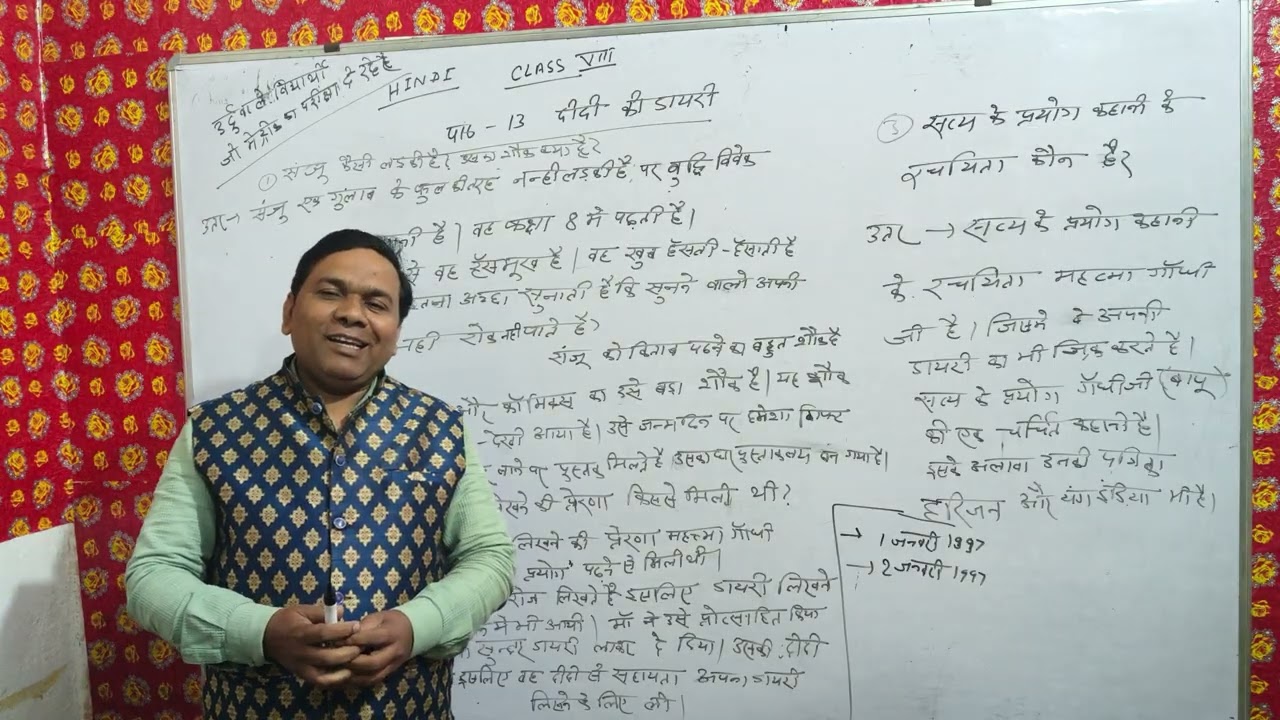 उर्दू वाले विद्यार्थी
जो मैट्रीक का परीक्षा दे रहे है
HINDI CLASS VIII
पाठ - 13 दीदी की डायरी
① संजू कैसी लड़की है? उसका शौक क्या है?
उत्तर → संजु एक गुलाब के फुल की तरह नन्ही लड़की है, पर बुद्धि विवेक
है। वह कक्षा 8 में पढ़ती है।
वह हँसमुख है। वह खुब हँसती - हँसाती है
अच्छा सुनाती है कि सुनने वालो
नही रोक नही पाते है?
संजू को किताब पढ़ने का बहुत शौक है
कॉमिक्स का इसे बड़ा शौक है। यह शौक
आया है। उसे जन्मदिन पर हमेशा
पर पुस्तक मिलते है उसका घर पुस्तकालय बन गया है।
लिखने की प्रेरणा किससे मिली थी?
लिखने की प्रेरणा महत्मा गाँधी
प्रयोग' पढ़ने से मिली थी।
रोज लिखते है इसलिए डायरी लिखने
में भी आयी। माँ ने उसे प्रोत्साहित किया
सुन्दर डायरी लाकर दे दिया। उसकी दीदी
इसलिए वह दीदी के सहायता अपना डायरी
लिखने के लिए ली।
③ सत्य के प्रयोग कहानी के
रचयिता कौन है?
उतर → सत्य के प्रयोग कहानी
के रचयिता महत्मा गाँधी
जी है। जिसमे वे अपनी
डायरी का भी जिक्र करते है।
सत्य के प्रयोग गाँधीजी (बापू)
की एक चर्चित कहानी है।
इसके अलावा उनकी पत्रिका
हरिजन और यंग इंडिया भी है।
→ 1 जनवरी 1997
→ 2 जनवरी 1997